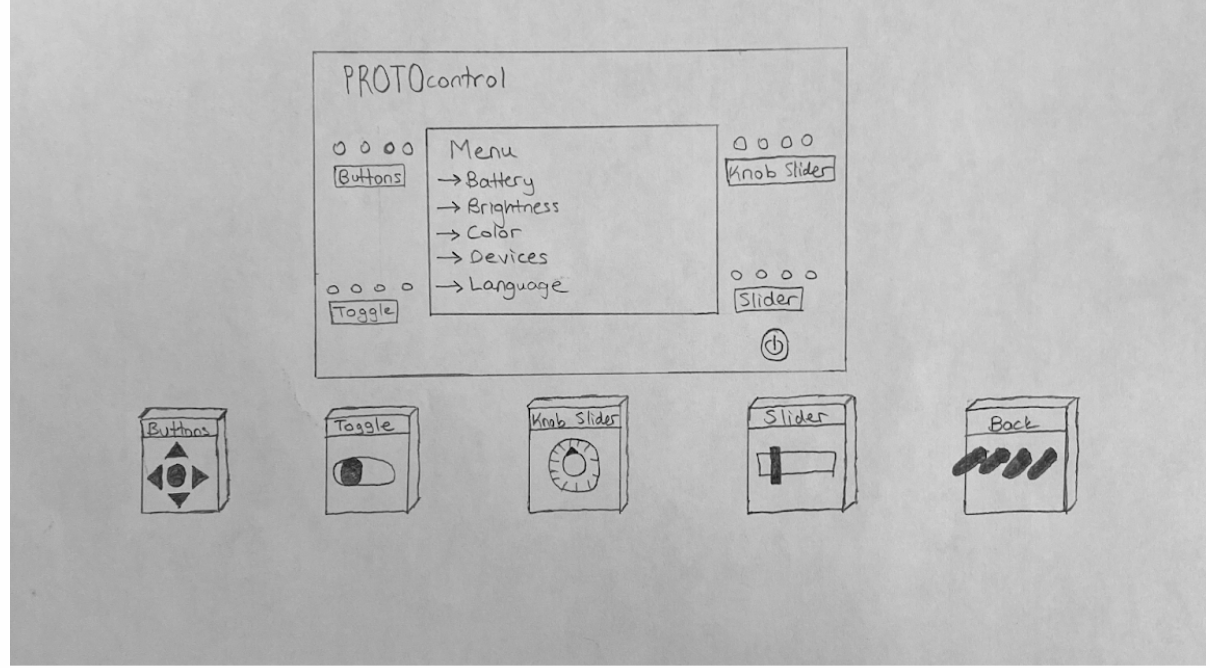 PROTOcontrol
Buttons
Menu
→ Battery
→ Brightness
→ Color
→ Devices
→ Language
Knob Slider
Toggle
Slider
Buttons
Toggle
Knob Slider
Slider
Back